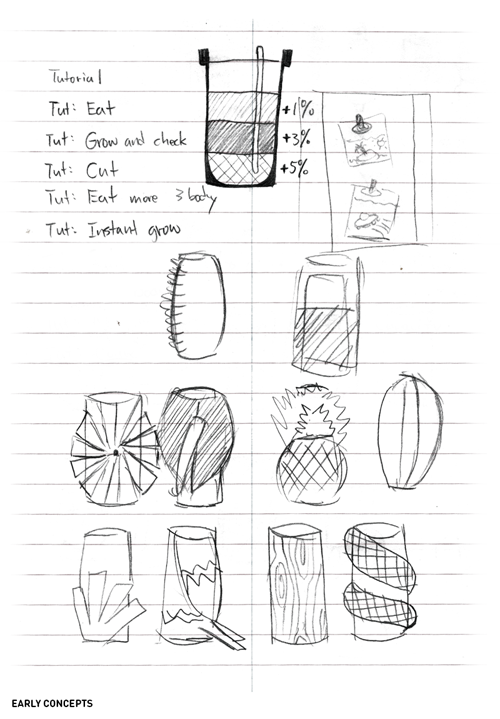 Tutorial
Tut: Eat
Tut: Grow and check
Tut: Cut
Tut: Eat more 3 body
Tut: Instant grow
+1%
+3%
+5%
EARLY CONCEPTS